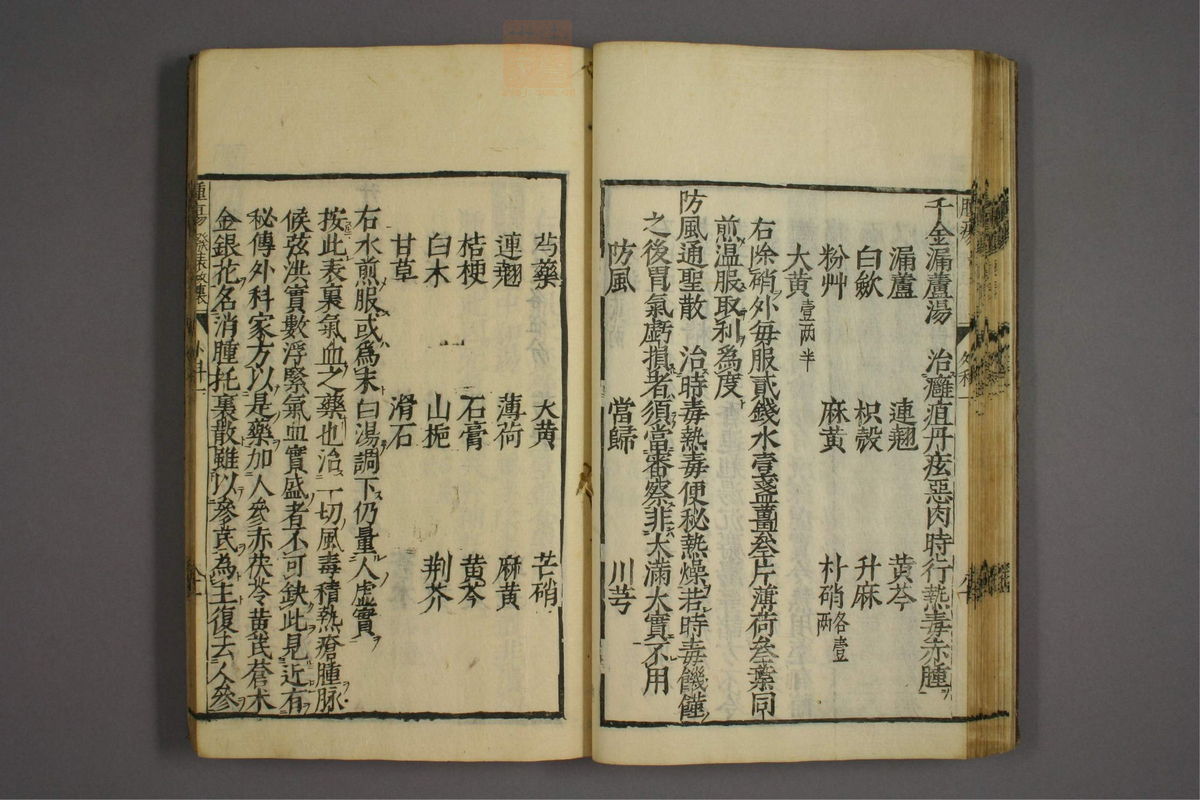 千金漏蘆湯　治癰疽丹𤵜惡肉時行熱毒赤腫
漏蘆　連翹　黄芩
白歛　枳殼　升麻
粉艸　麻黄　朴硝各壹兩
大黄壹兩半
右除硝外毎服貳錢水壹盞薑叄片薄荷叄葉同
煎温服取利為度
防風通聖散　治時毒熱毒便秘熱燥若時毒饑饉
之後胃氣虧損者須當審察非大滿大實不用
防風　當歸　川芎
芍藥　大黄　芒硝
連翹　薄荷　麻黄
桔梗　石膏　黄芩
白木　山梔　荆芥
甘草　滑石
右水煎服或為末白湯調下仍量人虚實
按此表裏氣血之藥也治一切風毒積熱瘡腫脉
候弦洪實數浮緊氣血實盛者不可缺此見近有
秘傳外科家方以是藥加人參赤茯苓黄芪蒼术
金銀花名消腫托裏散雖以參芪為主復去人參